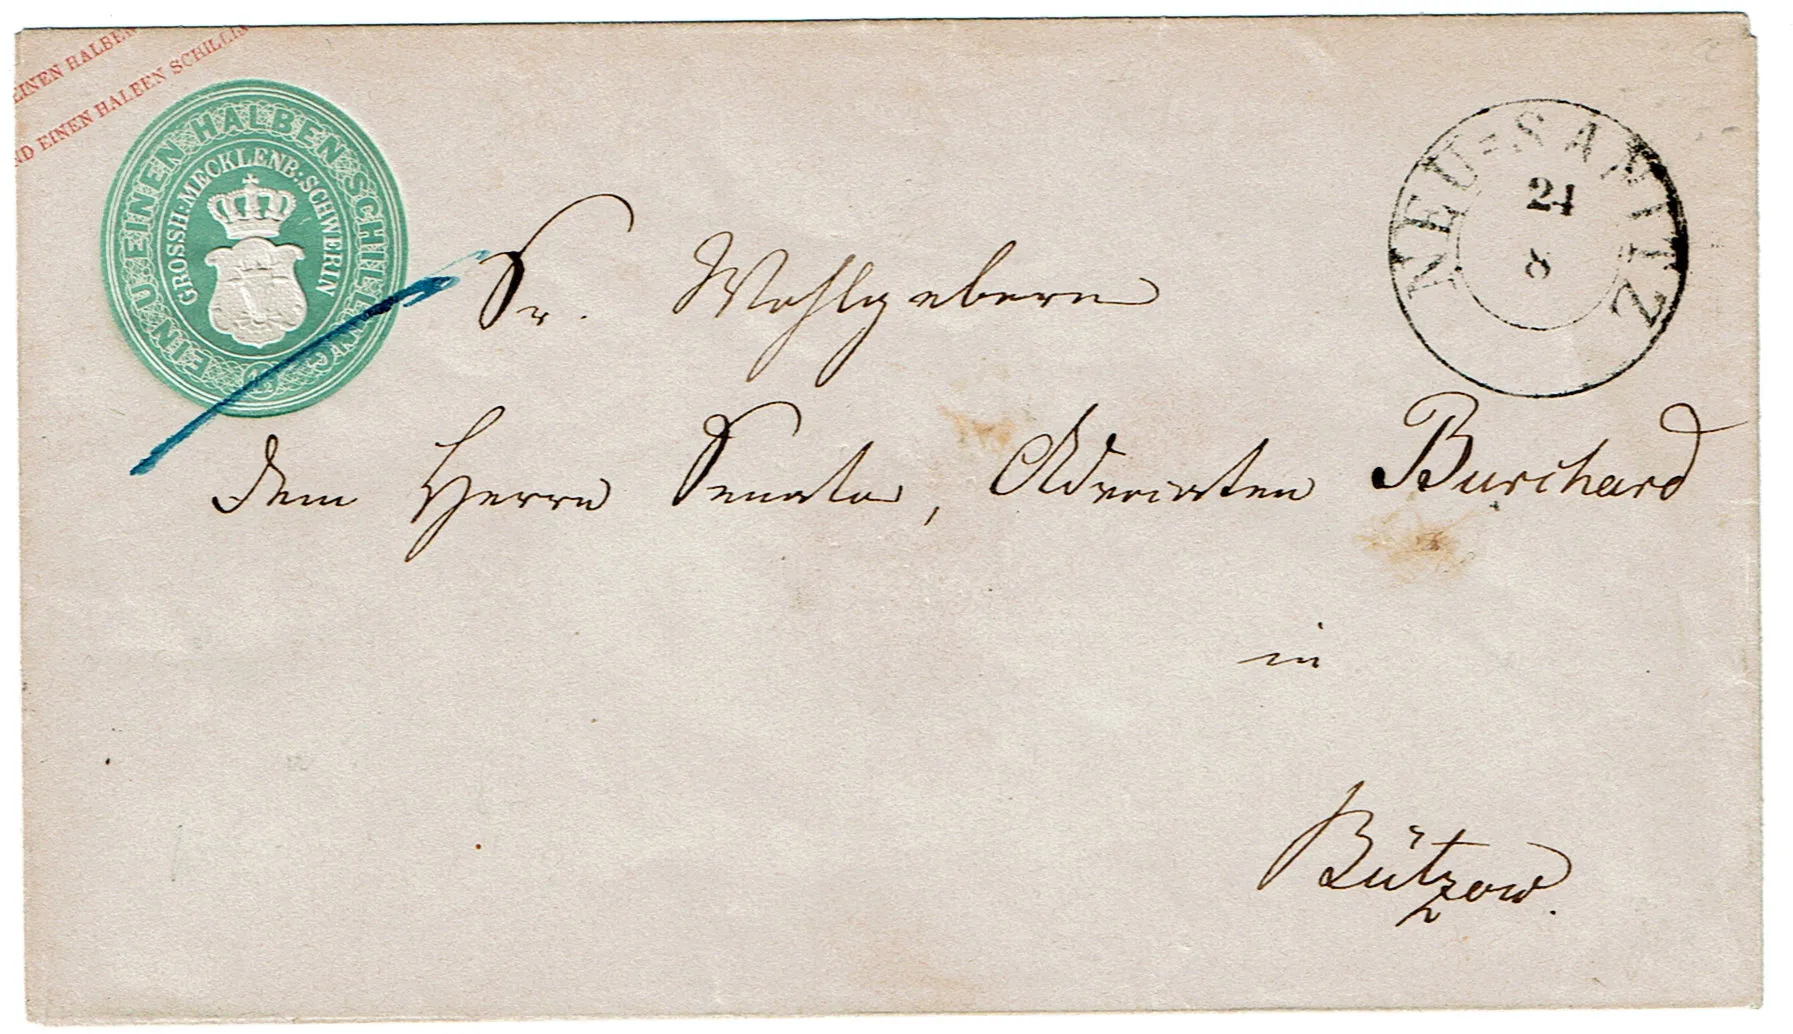 EINEN HALBEN
ND EINEN HALBEN SCHILLIN
EIN U. EINEN HALBEN SCHILLING
GROSSH: MECKLENB: SCHWERIN
1½
NEU=SANITZ
21
8
Sr. Wohlgeborn
dem Herrn Senator, Advocaten Burchard
in
Bützow.